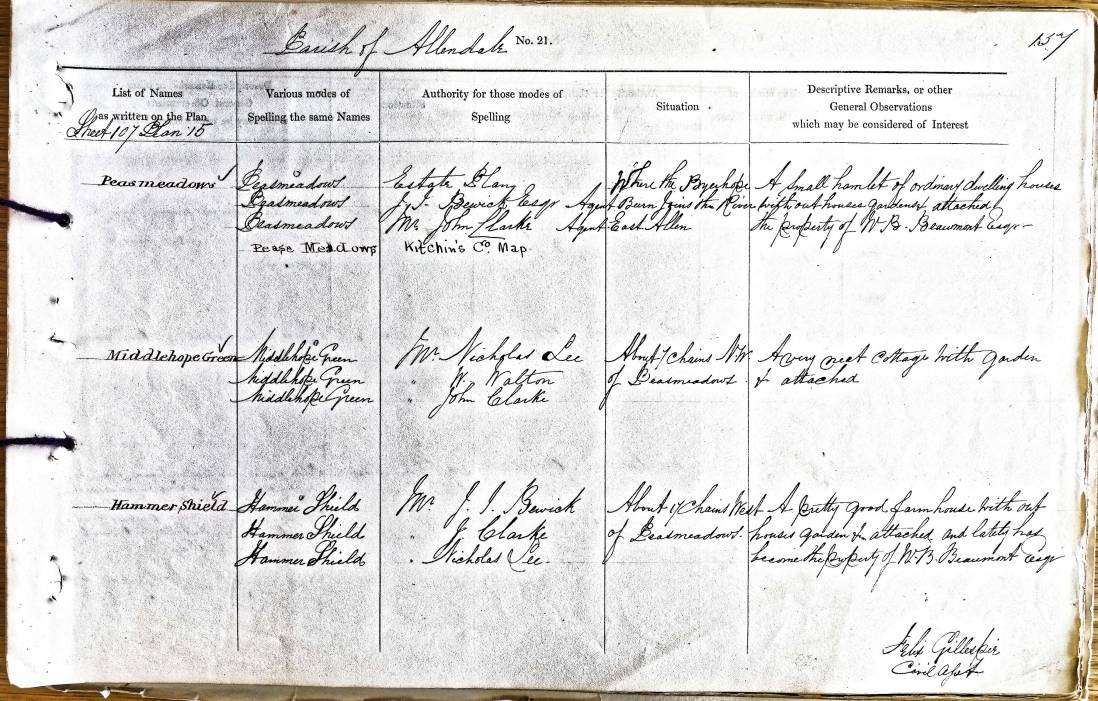 Parish of Allendale No. 21. 157
List of Names
as written on the Plan
Sheet 107 Plan 15
Various modes of
Spelling the same Names
Authority for those modes of
Spelling
Situation
Descriptive Remarks, or other
General Observations
which may be considered of Interest
Peasmeadows Peasmeadows Estate Plan Where the Byerhope A small hamlet of ordinary dwelling houses
Peasmeadows J. I. Bewick Esqr Agent Burn joins the River with out houses gardens &c attached &
Peasmeadows Mr John Clarke Agent East Allen the property of W B. Beaumont Esqr
Pease Meadows Kitchin's Co. Map
Middlehope Green Middlehope Green Mr Nicholas Lee About 7 Chains N.W. A very neat cottage with garden
Middlehope Green " W. Walton of Peasmeadows. & attached
Middlehope Green " John Clarke
Hammer Shield Hammer Shield Mr J. I. Bewick About 17 Chains West A pretty good farmhouse with out
Hammer Shield " J. Clarke of Peasmeadows. houses garden &c attached and lately has
Hammer Shield " Nicholas Lee. become the property of W. B. Beaumont Esqr
Felix Gillespie
Civil Asst